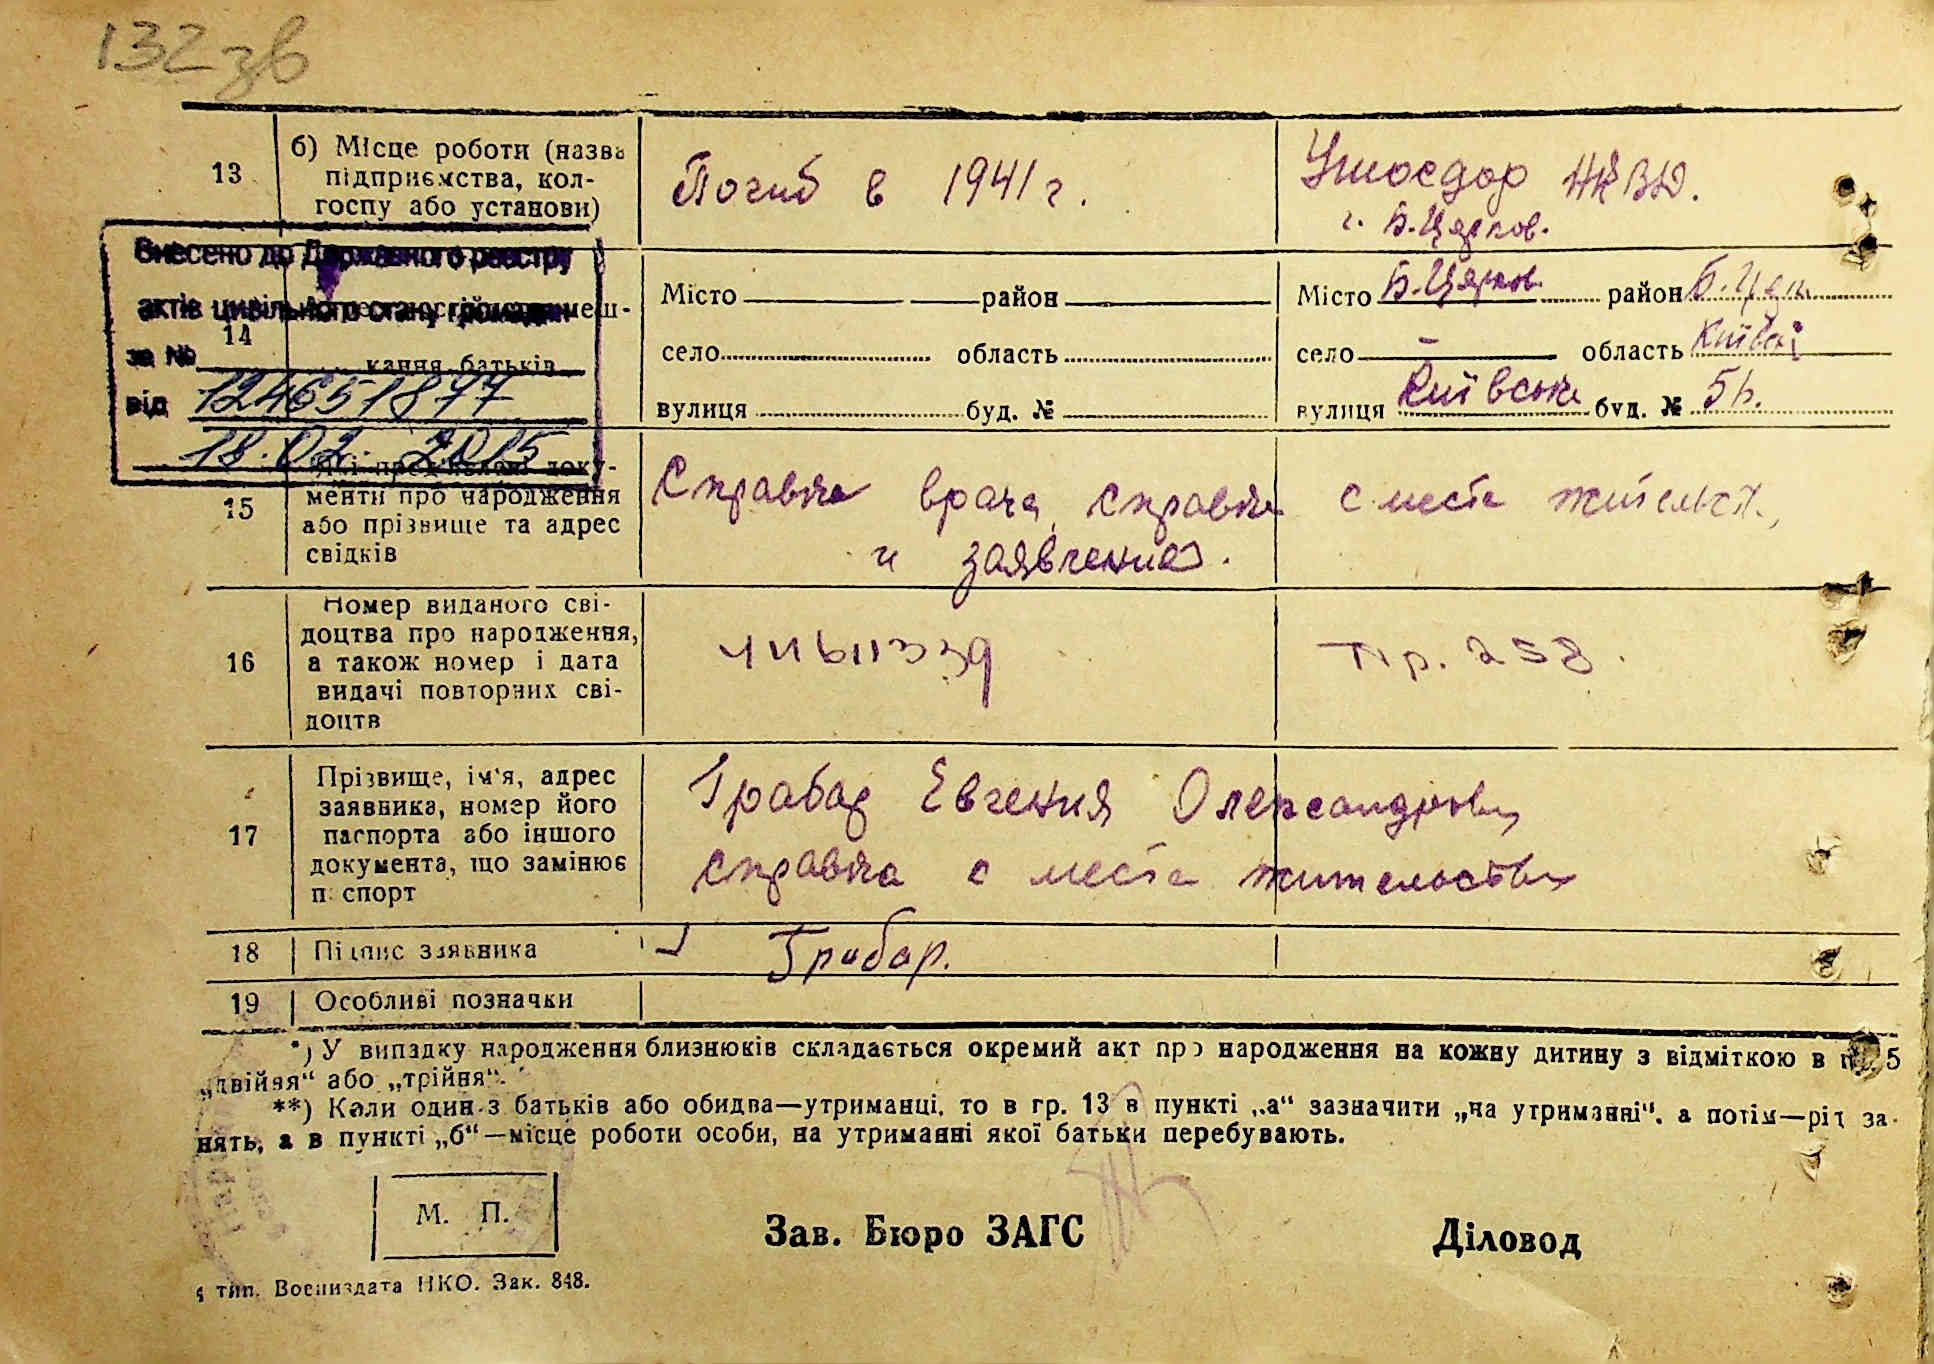 132 зв
13
б) Місце роботи (назва
підприємства, кол-
госпу або установи)
Погиб в 1941 г.
Ушосдор НКВД.
г. Б.Церков.
Внесено до Державного реєстру
актів цивільного стану громадян
за №
від 124651877
18.02. 2015
14
меш-
кання батьків
Місто район
село область
вулиця буд. №
Місто Б.Церков. район Б.Церк.
село — область Київські
вулиця Київська буд. № 5
15
доку-
менти про народження
або прізвище та адрес
свідків
Справка врача, справка с места жительст.,
и заявление.
16
Номер виданого сві-
доцтва про народження,
а також номер і дата
видачі повторних сві-
доцтв
Пр. 258.
17
Прізвище, ім'я, адрес
заявника, номер його
паспорта або іншого
документа, що замінює
п спорт
Грабар Евгения Олександровн
справка с места жительства
18
Підпис заявника
Грабар.
19
Особливі позначки
*) У випадку народження близнюків складається окремий акт про народження на кожну дитину з відміткою в п. 5
„двійня“ або „трійня“.
**) Коли один з батьків або обидва—утриманці, то в гр. 13 в пункті „а“ зазначити „на утриманні“, а потім—рід за-
нять, а в пункті „б“—місце роботи особи, на утриманні якої батьки перебувають.
М. П.
Зав. Бюро ЗАГС
Діловод
тип. Воениздата НКО. Зак. 848.